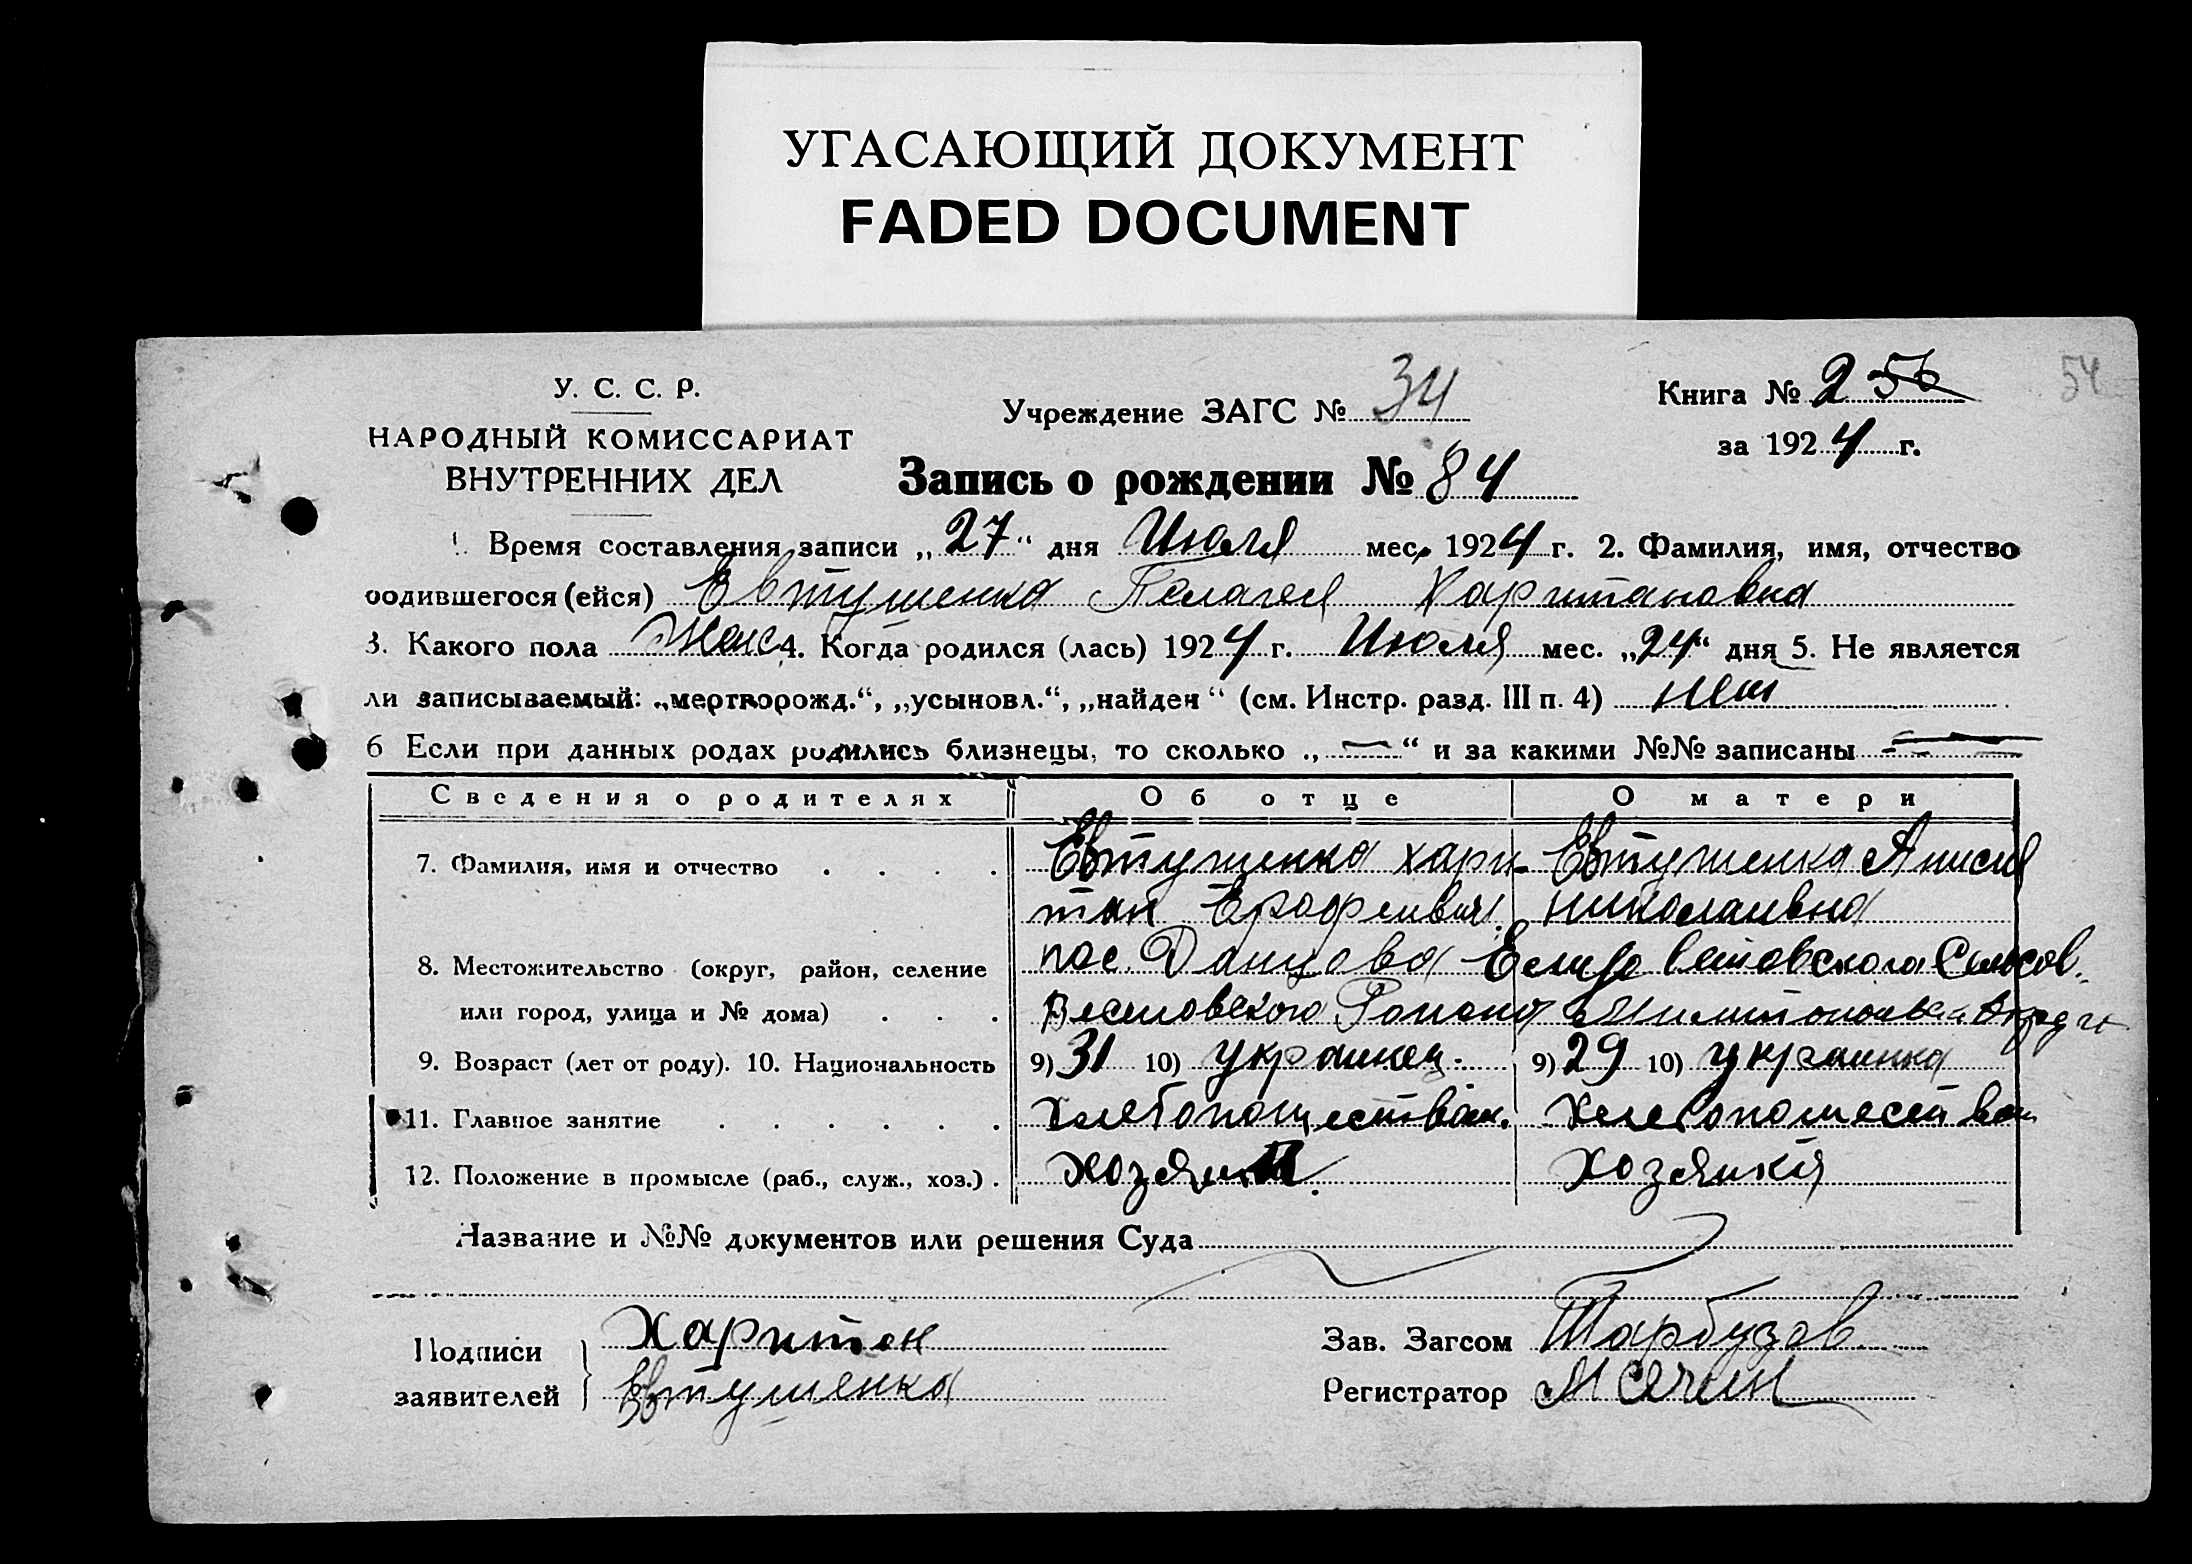 УГАСАЮЩИЙ ДОКУМЕНТ
FADED DOCUMENT
У. С. С. Р.
НАРОДНЫЙ КОМИССАРИАТ
ВНУТРЕННИХ ДЕЛ
Учреждение ЗАГС № 34
Книга № 2 56
54
за 1924 г.
Запись о рождении № 84
1. Время составления записи „27“ дня Июля мес. 1924 г. 2. Фамилия, имя, отчество
родившегося (ейся) Евтушенко Пелагея Харитоновна
3. Какого пола Женс 4. Когда родился (лась) 1924 г. Июля мес. „24“ дня 5. Не является
ли записываемый: „мертворожд.“, „усыновл.“, „найден“ (см. Инстр. разд. III п. 4) нет
6 Если при данных родах родились близнецы, то сколько „—“ и за какими №№ записаны —
Сведения о родителях Об отце О матери
7. Фамилия, имя и отчество Евтушенко Хари- Евтушенко Анисия
тон Ерофеивич. Николаивна
8. Местожительство (округ, район, селение пос. Данцово Елизаветовского Сельсов.
или город, улица и № дома) Веселовского Района
9. Возраст (лет от роду). 10. Национальность 9) 31 10) украинец. 9) 29 10) украинка
11. Главное занятие Хлебопошество.
12. Положение в промысле (раб., служ., хоз.) Хозяин. Хозяйка
Название и №№ документов или решения Суда
Подписи Харитон Зав. Загсом Тарбузов
заявителей Евтушенко Регистратор